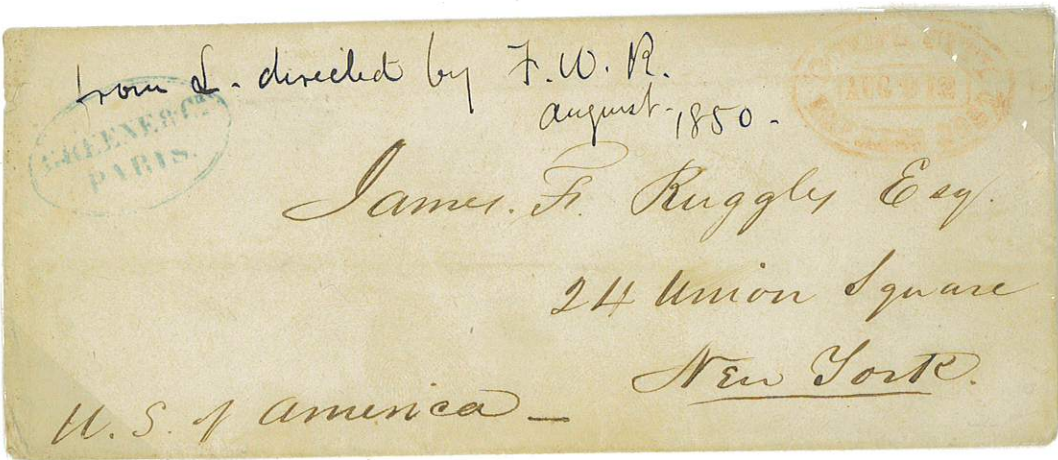 from L. directed by F. W. R.
august 1850.
GREENE & Co.
PARIS.
AUG
James. F. Ruggles Esq.
24 Union Square
New York.
U. S. of America